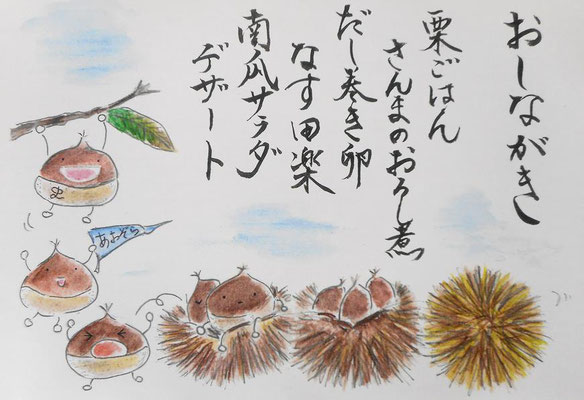 おしながき
栗ごはん
さんまのおろし煮
だし巻き卵
なす田楽
南瓜サラダ
デザート
あおぞら